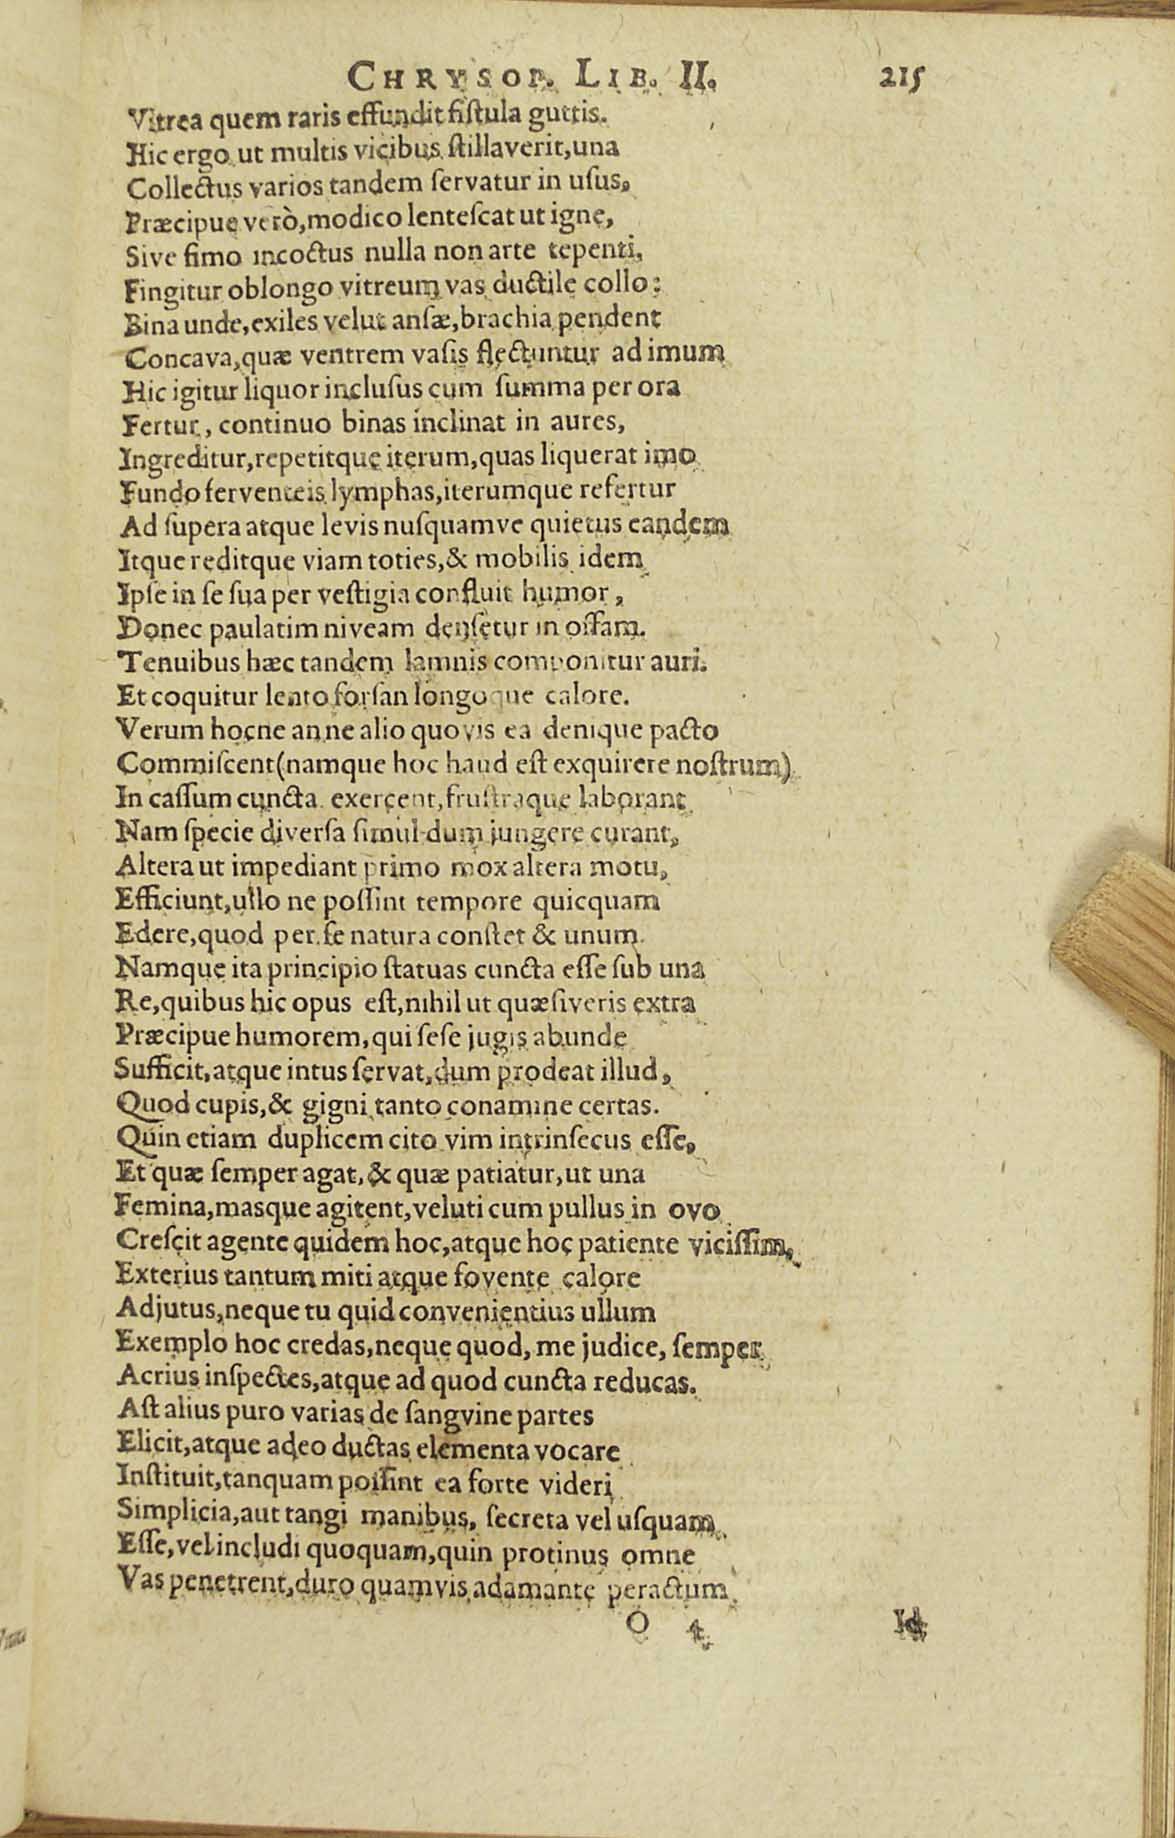 CHRYSOP. LIB. II. 215
Vitrea quem raris effundit fiſtula guttis.
Hic ergo ut multis vicibus ſtillaverit, una
Collectus varios tandem ſervatur in uſus,
Præcipue verò, modico lenteſcat ut igne,
Sive fimo incoctus nulla non arte tepenti,
Fingitur oblongo vitreum vas ductile collo:
Bina unde, exiles velut anſæ, brachia pendent
Concava, quæ ventrem vaſis flectuntur ad imum
Hic igitur liquor incluſus cum ſumma per ora
Fertur, continuo binas inclinat in aures,
Ingreditur, repetitque iterum, quas liquerat imo
Fundo ferventeis lymphas, iterumque refertur
Ad ſupera atque levis nuſquamve quietus eandem
Itque reditque viam toties, & mobilis idem
Ipſe in ſe ſua per veſtigia confluit humor,
Donec paulatim niveam denſetur in offam.
Tenuibus hæc tandem lamnis componitur auri.
Et coquitur lento forſan longoque calore.
Verum hocne anne alio quovis ea denique pacto
Commiſcent (namque hoc haud eſt exquirere noſtrum)
In caſſum cuncta exercent, fruſtraque laborant
Nam ſpecie diverſa ſimul dum jungere curant,
Altera ut impediant primo mox altera motu,
Efficiunt, ullo ne poſſint tempore quicquam
Edere, quod per ſe natura conſtet & unum
Namque ita principio ſtatuas cuncta eſſe ſub una
Re, quibus hic opus eſt, nihil ut quæſiveris extra
Præcipue humorem, qui ſeſe jugis abunde
Sufficit, atque intus ſervat, dum prodeat illud,
Quod cupis, & gigni tanto conamine certas.
Quin etiam duplicem cito vim intrinſecus eſſe,
Et quæ ſemper agat, & quæ patiatur, ut una
Femina, masque agitent, veluti cum pullus in ovo
Creſcit agente quidem hoc, atque hoc patiente viciſſim,
Exterius tantum miti atque fovente calore
Adjutus, neque tu quid convenientius ullum
Exemplo hoc credas, neque quod, me judice, ſemper
Acrius inſpectes, atque ad quod cuncta reducas.
Aſt alius puro varias de ſangvine partes
Elicit, atque adeo ductas elementa vocare
Inſtituit, tanquam poſſint ea forte videri
Simplicia, aut tangi manibus, ſecreta vel uſquam
Eſſe, vel includi quoquam, quin protinus omne
Vas penetrent, duro quamvis adamante peractum.
O 4 Id